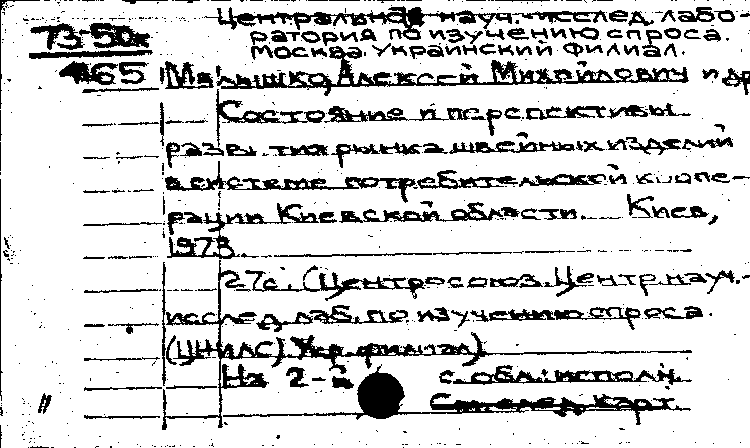 Центральная науч.-исслед. лабо-
73-50к ратория по изучению спроса.
Москва. Украинский филиал.
465 Малышко, Алексей Михайлович и др
Состояние и перспективы
развития рынка швейных изделий
в системе потребительской коопе-
рации Киевской области. Киев,
1973.
27с. (Центросоюз. Центр. науч.-
исслед. лаб. по изучению спроса
(ЦНИЛС). Укр. филиал).
На 2-й с. обл.: исполн.
См. след. карт.